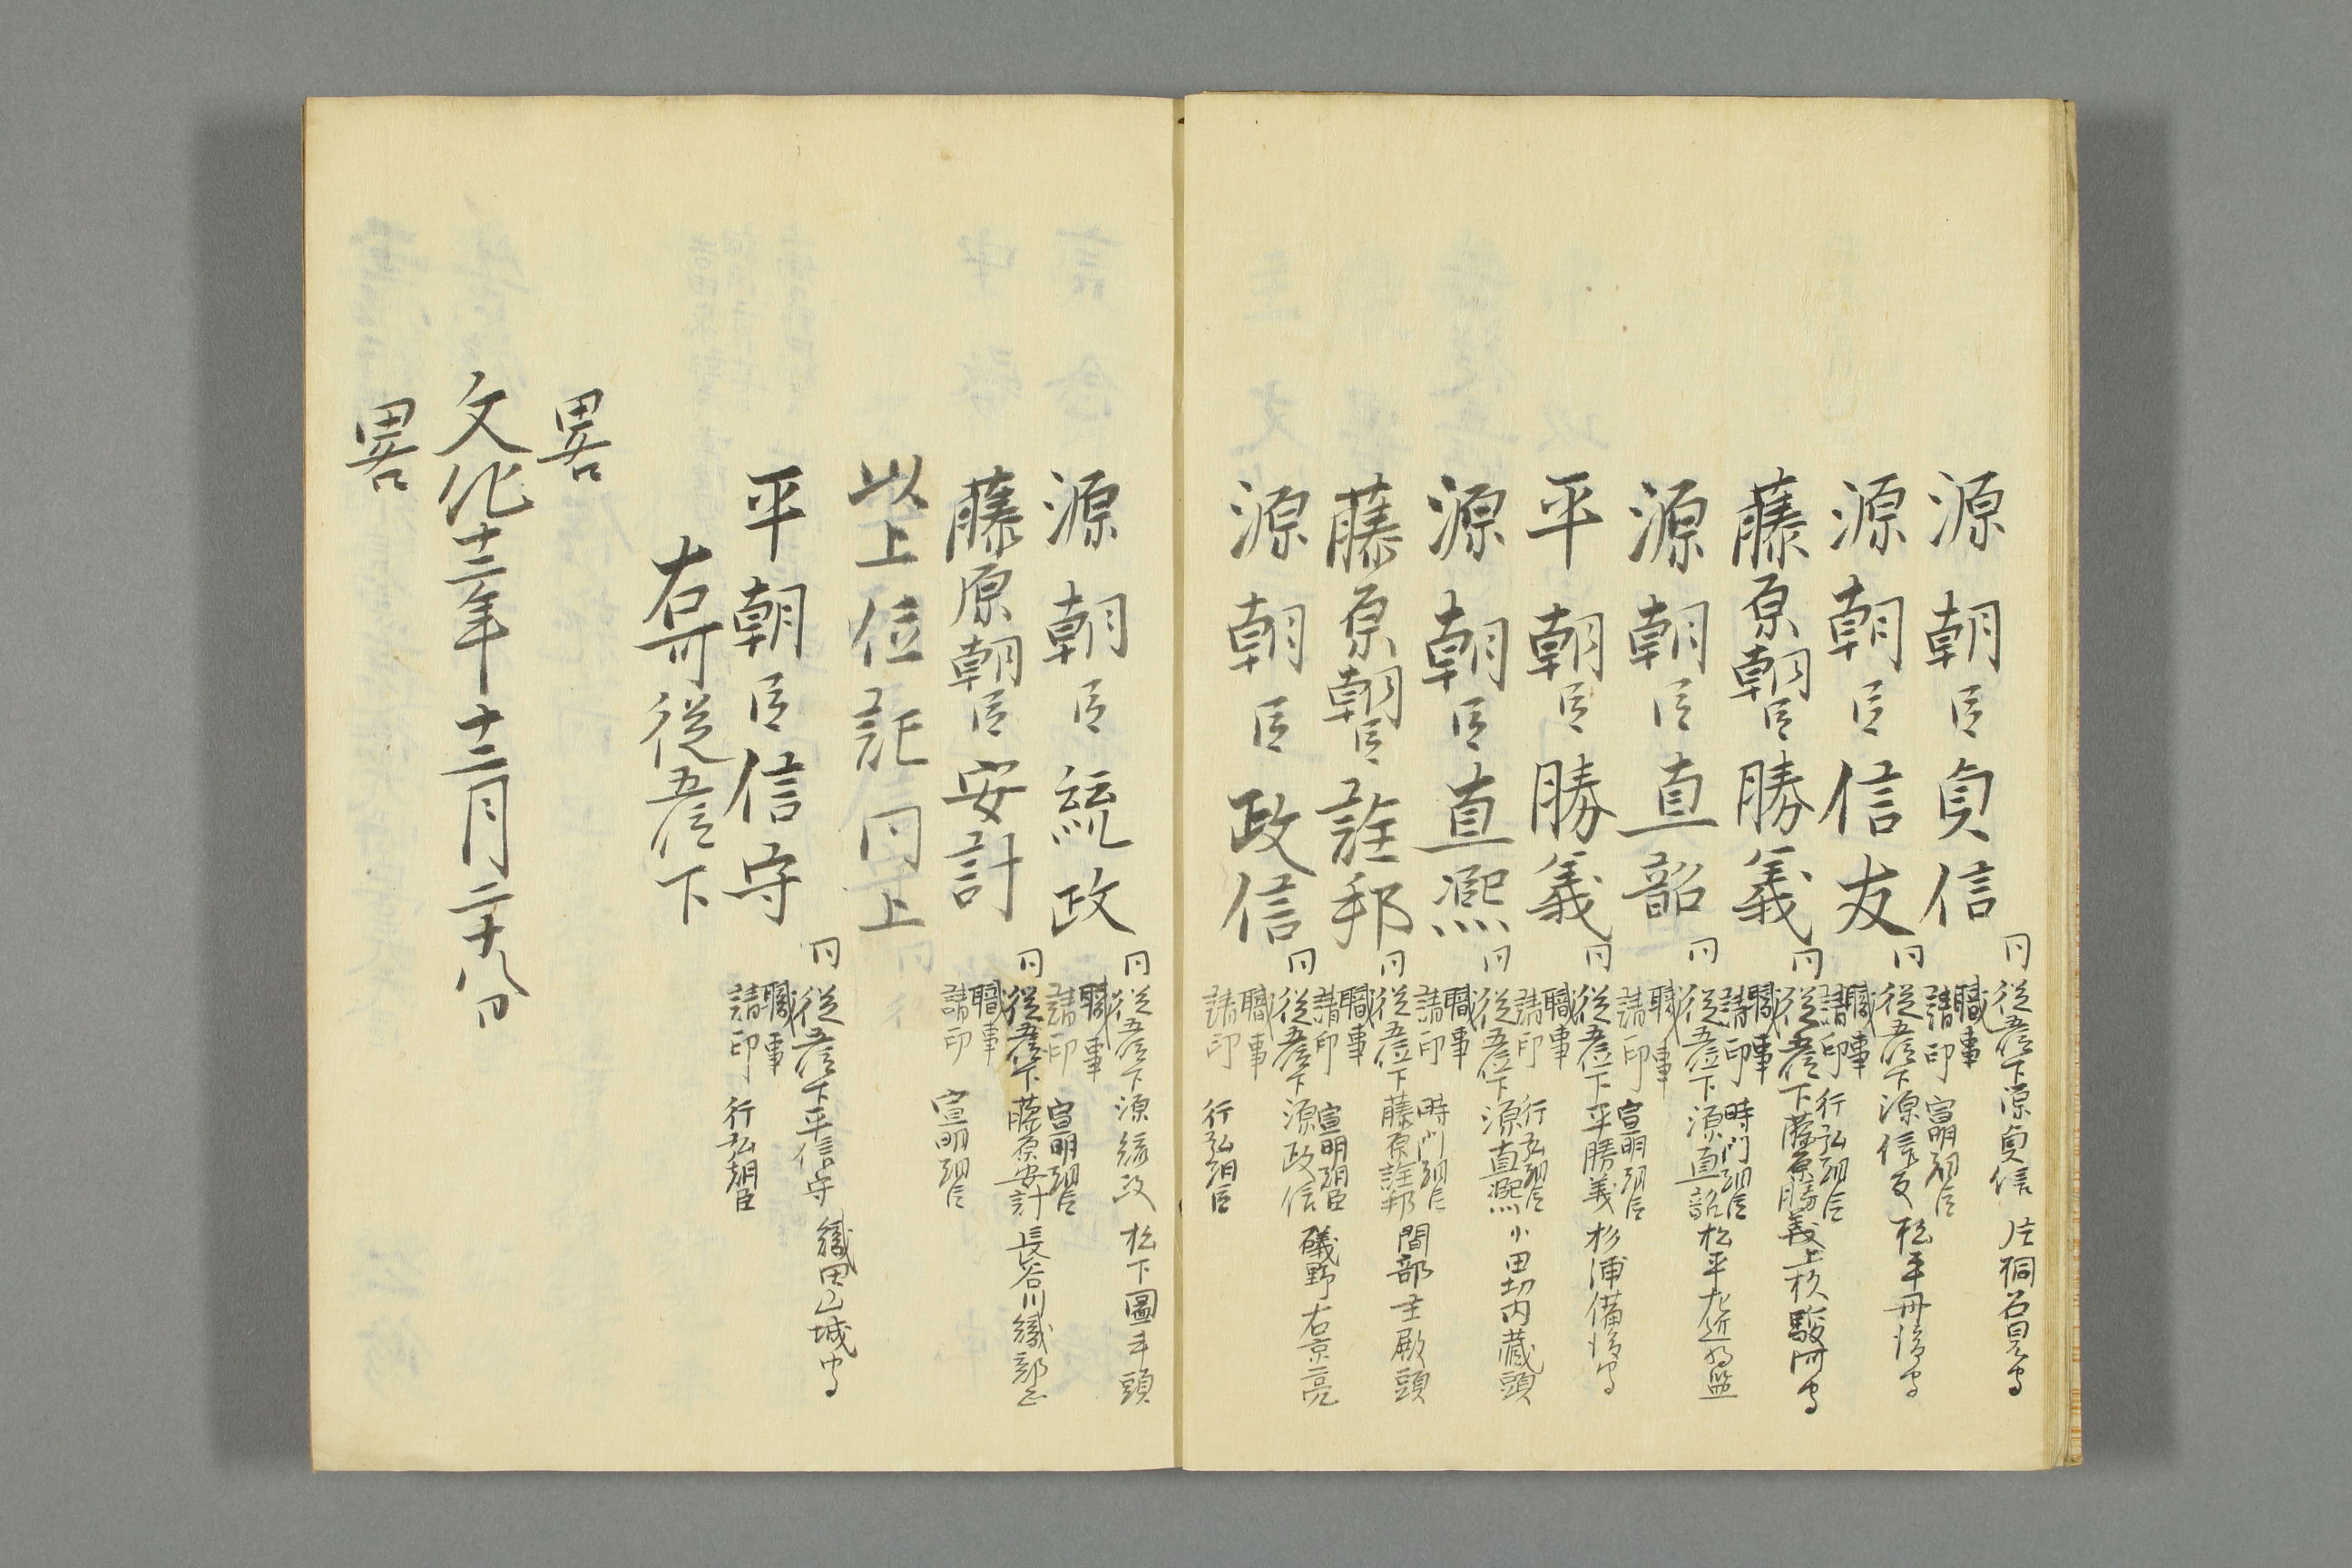 源朝臣貞信
同従五位下源貞信 片桐石見守
職事
請印 宣明朝臣
源朝臣信友
同従五位下源信友 松平丹後守
職事
請印 行弘朝臣
藤原朝臣勝義
同従五位下藤原勝義 上杉駿河守
職事
請印 時門朝臣
源朝臣直韶
同従五位下源直韶 松平左近将監
職事
請印 宣明朝臣
平朝臣勝義
同従五位下平勝義 杉浦備後守
職事
請印 行弘朝臣
源朝臣直凞
同従五位下源直凞 小田切内蔵頭
職事
請印 時門朝臣
藤原朝臣詮邦
同従五位下藤原詮邦 間部主殿頭
職事
請印 宣明朝臣
源朝臣政信
同従五位下源政信 礒野右京亮
職事
請印 行弘朝臣
源朝臣統政
同従五位下源統政 松下圖書頭
職事
請印 宣明朝臣
藤原朝臣安計
同従五位下藤原安計 長谷川織部正
職事
請印 宣明朝臣
以上位記同上
平朝臣信守
同従五位下平信守 織田山城守
職事
請印 行弘朝臣
右可従五位下
畧
文化十三年十二月二十八日
畧